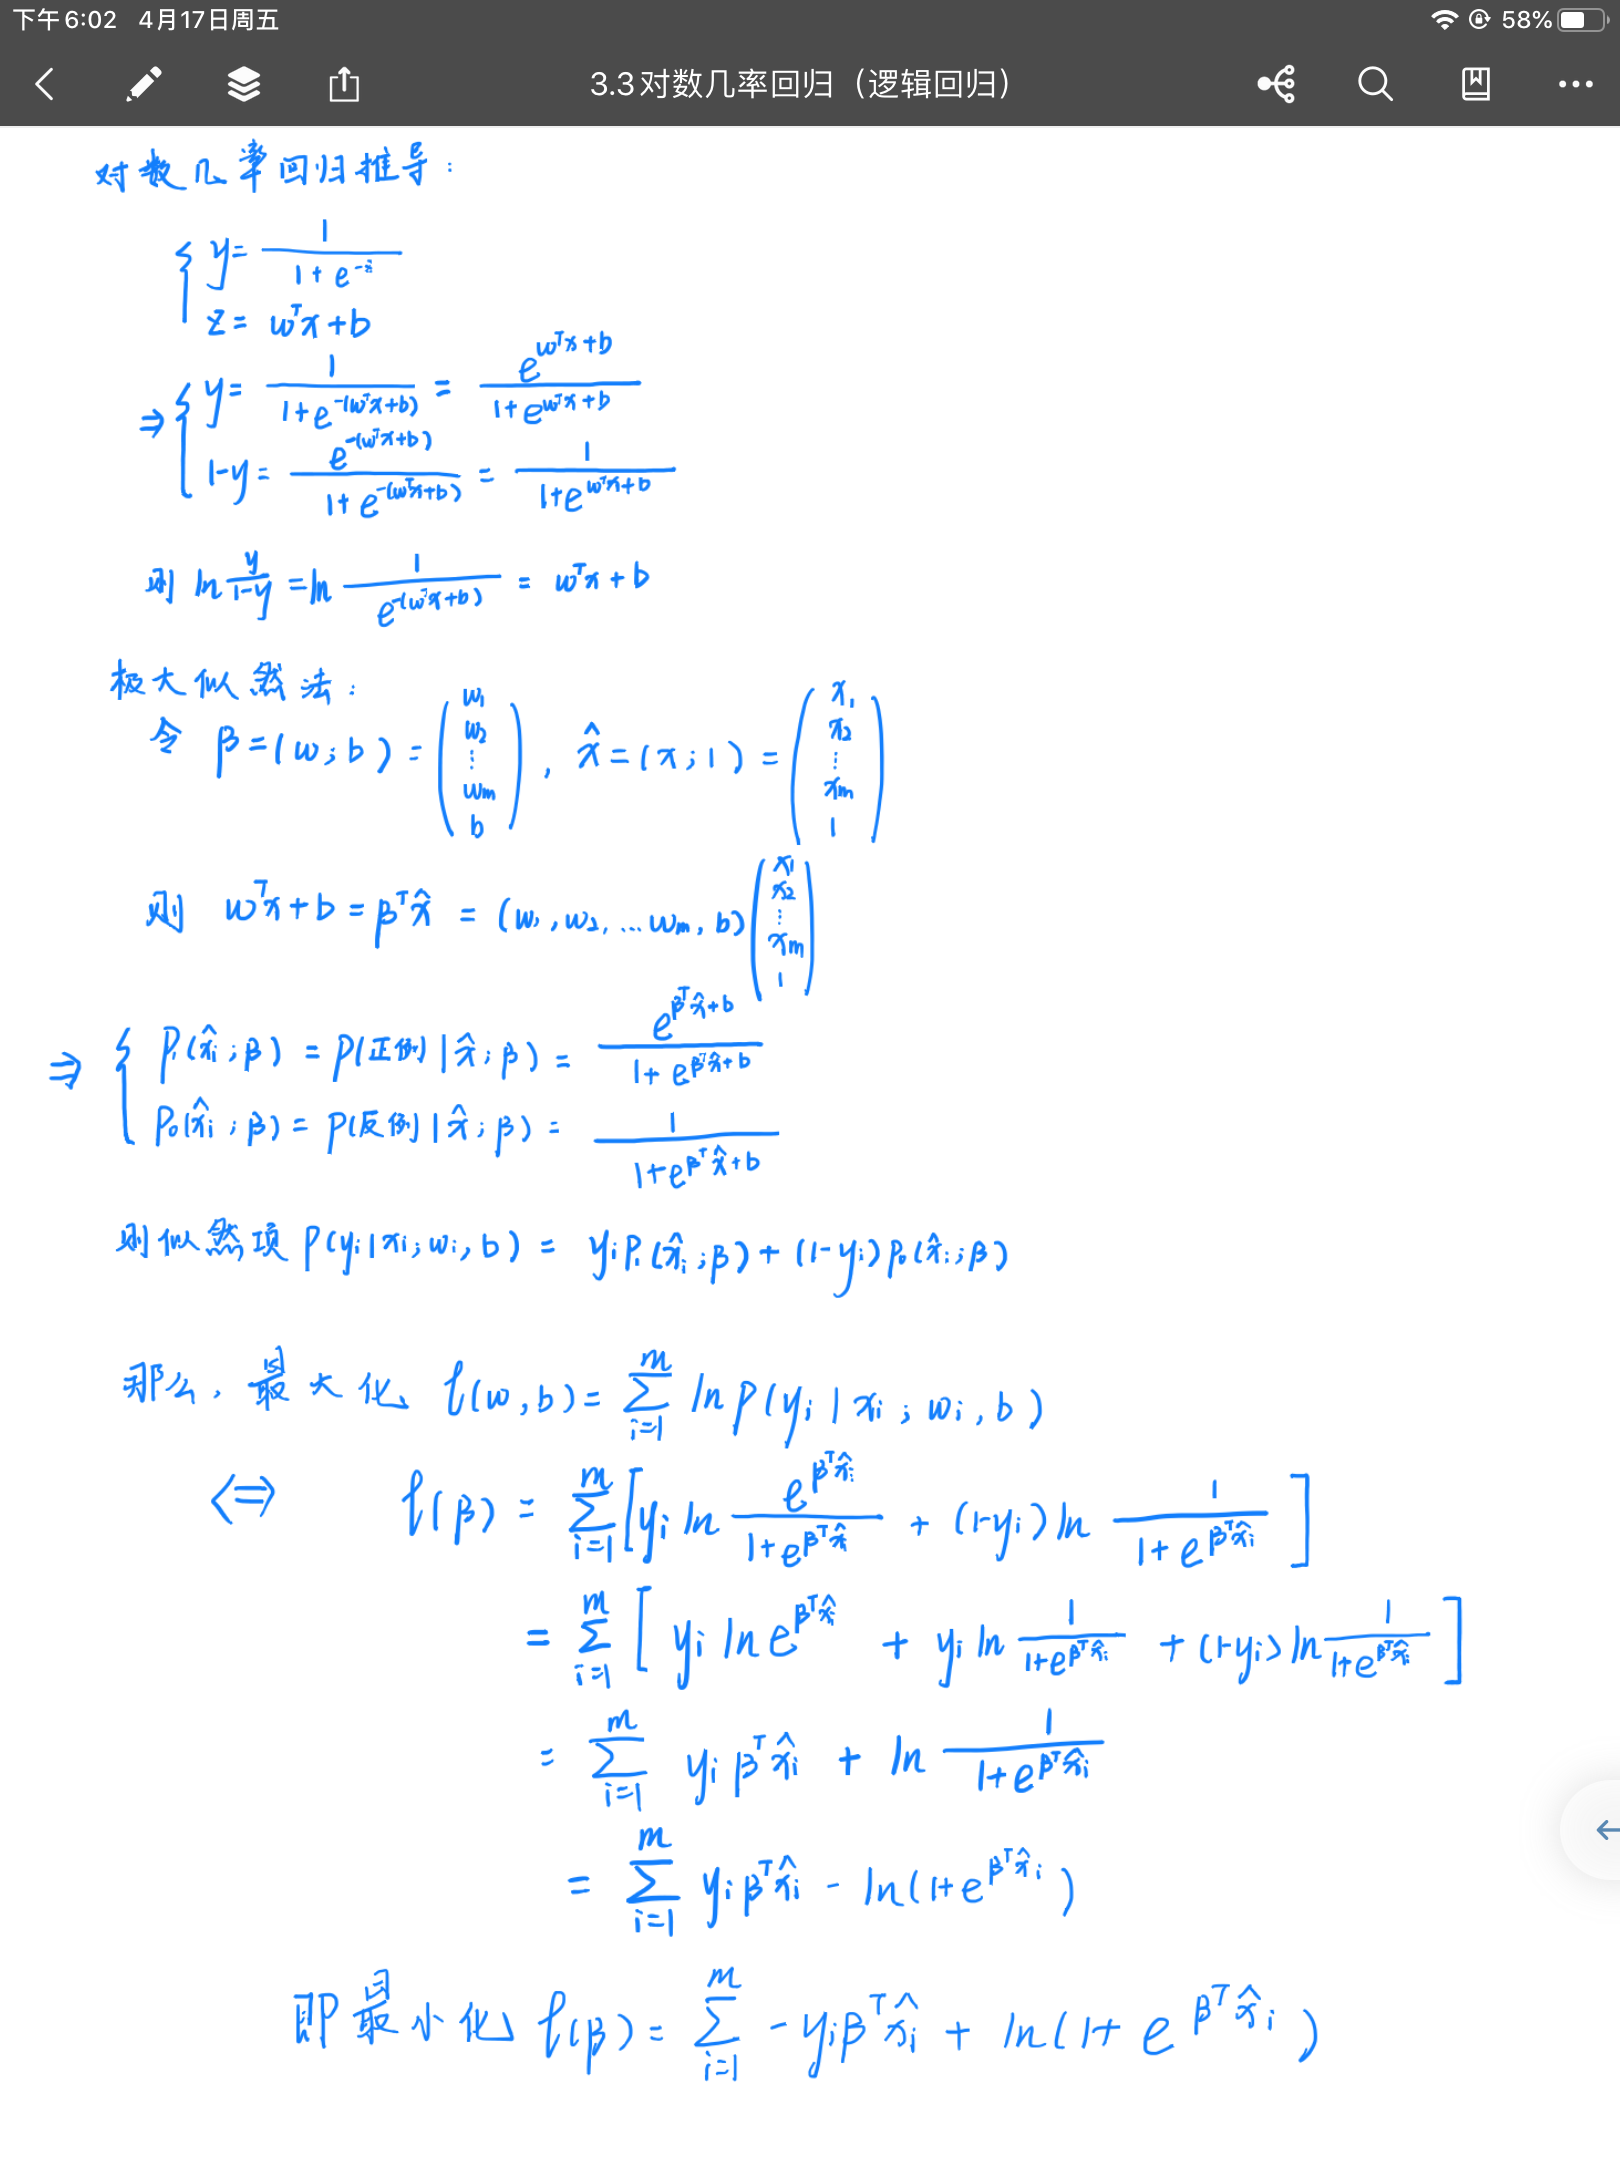 下午6:02 4月17日周五 58%
3.3对数几率回归（逻辑回归）
对数几率回归推导：
{ y = 1 / (1 + e^{-z})
z = w^T x + b
⇒ { y = 1 / (1 + e^{-(w^T x + b)}) = e^{w^T x + b} / (1 + e^{w^T x + b})
1 - y = e^{-(w^T x + b)} / (1 + e^{-(w^T x + b)}) = 1 / (1 + e^{w^T x + b})
则 ln y/(1-y) = ln 1 / e^{-(w^T x + b)} = w^T x + b
极大似然法：
令 β = (w; b) = (w₁ w₂ ⋮ w_m b), x̂ = (x; 1) = (x₁ x₂ ⋮ x_m 1)
则 w^T x + b = β^T x̂ = (w₁, w₂, … w_m, b) (x₁ x₂ ⋮ x_m 1)
⇒ { P₁(x̂_i; β) = P(正例 | x̂; β) = e^{β^T x̂ + b} / (1 + e^{β^T x̂ + b})
P₀(x̂_i; β) = P(反例 | x̂; β) = 1 / (1 + e^{β^T x̂ + b})
则似然项 P(y_i | x_i; w_i, b) = y_i P₁(x̂_i; β) + (1 - y_i) P₀(x̂_i; β)
那么, 最大化 ℓ(w, b) = Σ_{i=1}^{m} ln P(y_i | x_i; w_i, b)
⇔ ℓ(β) = Σ_{i=1}^{m} [y_i ln e^{β^T x̂_i} / (1 + e^{β^T x̂_i}) + (1 - y_i) ln 1 / (1 + e^{β^T x̂_i})]
= Σ_{i=1}^{m} [y_i ln e^{β^T x̂_i} + y_i ln 1 / (1 + e^{β^T x̂_i}) + (1 - y_i) ln 1 / (1 + e^{β^T x̂_i})]
= Σ_{i=1}^{m} y_i β^T x̂_i + ln 1 / (1 + e^{β^T x̂_i})
= Σ_{i=1}^{m} y_i β^T x̂_i - ln(1 + e^{β^T x̂_i})
即最小化 ℓ(β) = Σ_{i=1}^{m} -y_i β^T x̂_i + ln(1 + e^{β^T x̂_i})